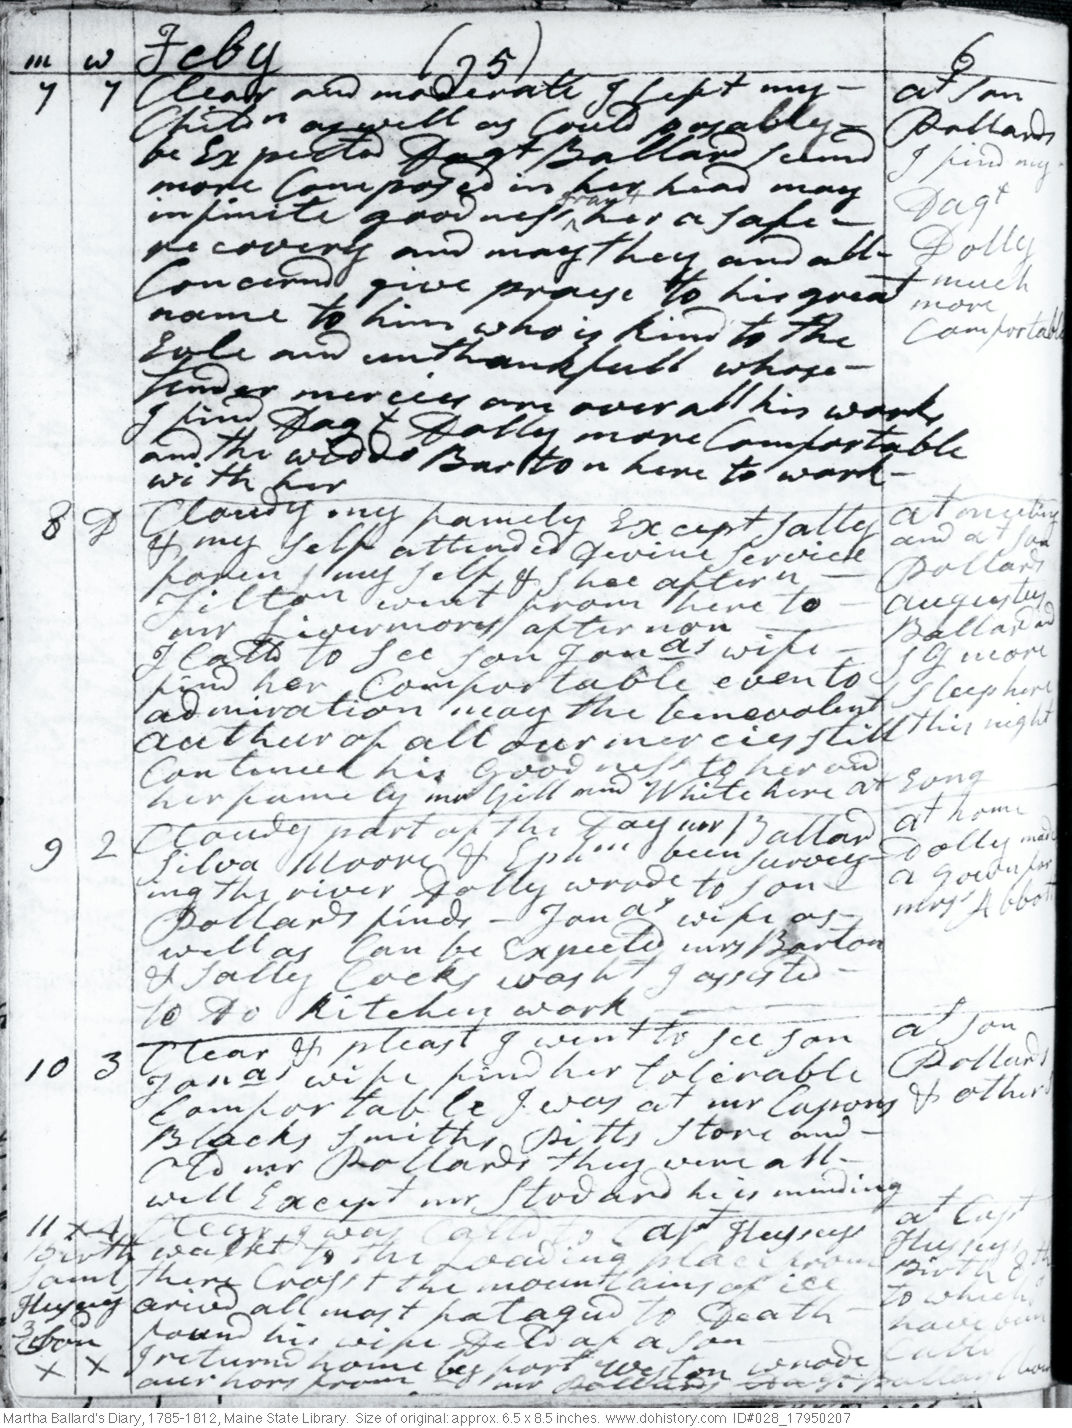 m w Feby (75) 6
7 7 Clear and moderate I slept my
Childn as well as Could posably
be Expected Dagt Ballard seemd
more Composed in her head may
infinite goodness grant her a safe
recovery and may they and all
Concernd give praise to his great
name to him who is kind to the
Evle and unthankfull whose
tender mercies are over all his works
I find Dagt Dolly more Comfortable
and the widdo Barton here to work
with her
at son
Pollards
I find my
Dagt
Dolly
much
more
Comfortable
8 D Cloudy my famely Except Sally
& my self attended Divine Service
foren, my self & shee aftern
Tilton went from here to
mr Livermores afternon
I Calld to See son Jonas wife
find her Comfortable even to
admiration may the benevolent
Author of all our mercies still
Continue his Goodness to her and
her famely mr Gill and White here at Eong
at meeting
and at son
Pollards
augustus
Ballard and
S G more
sleep here
this night
9 2 Cloudy part of the Day mr Ballard
Silva Moore & Ephm been survey
ing the river Dolly wrode to son
Pollards finds Jonas wife as
well as Can be Expected mrs Barton
& Sally Cocks washt I assisted
to Do kitchen work
at home
Dolly made
a gown for
mrs Abbot
10 3 Clear & pleast I went to see son
Jonas wife find her tolerable
Comfortable I was at mr Capons
Blacks Smiths Pitts Store and
Old mr Pollards they were all
well Except mr Stodard he is mending
at son
Pollards
& others
11 x 4 Clear I was Calld to Capt Husseys
walkt to the Loading place from
there Crosst the mountains of ice
arived all most fatagud to Death
found his wife Deld of a son
I returnd home by port Weston wrode
our hors from mr Pollards Dagt Ballard
Birth
Saml
Husseys
3 son
x x
at Capt
Husseys
Birth 8th
to which I
have been
Calld